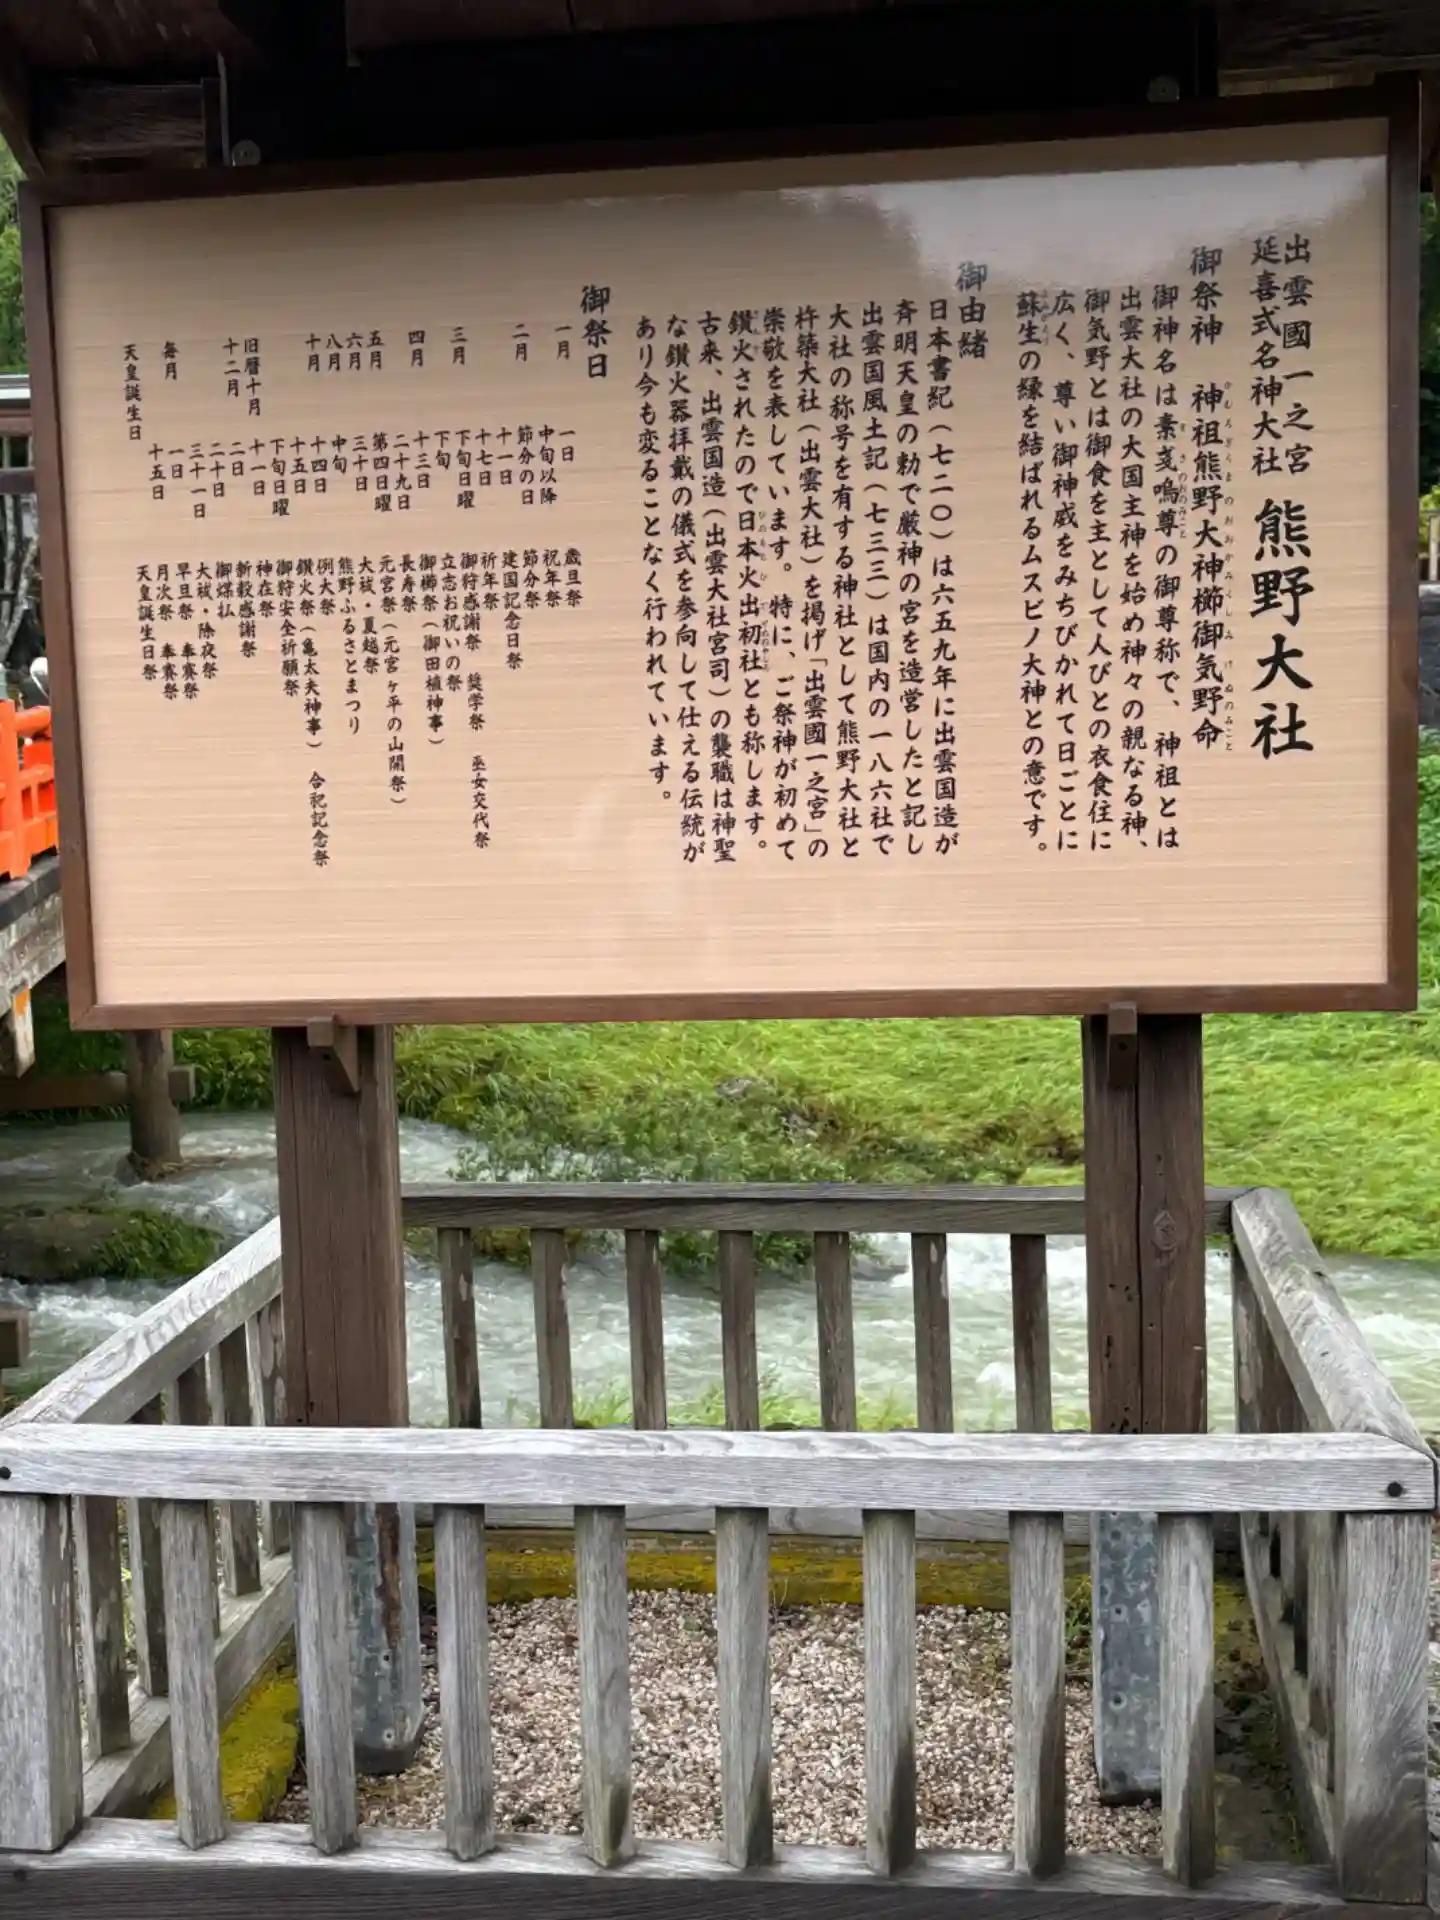 出雲國一之宮
延喜式名神大社
熊野大社
御祭神　神祖熊野大神櫛御気野命
御神名は素戔嗚尊の御尊称で、神祖とは
出雲大社の大国主神を始め神々の親なる神、
御気野とは御食を主として人びとの衣食住に
広く、尊い御神威をみちびかれて日ごとに
蘇生の縁を結ばれるムスビノ大神との意です。
御由緒
日本書紀（七二〇）は六五九年に出雲国造が
斉明天皇の勅で厳神の宮を造営したと記し
出雲国風土記（七三三）は国内の一八六社で
大社の称号を有する神社として熊野大社と
杵築大社（出雲大社）を掲げ「出雲國一之宮」の
崇敬を表しています。特に、ご祭神が初めて
鑽火されたので日本火出初社とも称します。
古来、出雲国造（出雲大社宮司）の襲職は神聖
な鑽火器拝戴の儀式を参向して仕える伝統が
あり今も変ることなく行われています。
御祭日
一月　一日　歳旦祭
中旬以降　祝年祭
二月　節分の日　節分祭
十一日　建国記念日祭
十七日　祈年祭
三月　下旬日曜　御狩感謝祭　奨学祭　巫女交代祭
下旬　立志お祝いの祭
四月　十三日　御櫛祭（御田植神事）
二十九日　長寿祭
元宮祭（元宮ヶ平の山開祭）
五月　第四日曜
六月　三十日　大祓・夏越祭
八月　中旬　熊野ふるさとまつり
十月　十四日　例大祭
十五日　鑽火祭（亀太夫神事）　合祀記念祭
下旬日曜　御狩安全祈願祭
旧暦十月　十一日　神在祭
十二月　二日　新穀感謝祭
二十日　御煤払
三十一日　大祓・除夜祭
毎月　一日　早旦祭　奉賽祭
十五日　月次祭　奉賽祭
天皇誕生日　天皇誕生日祭